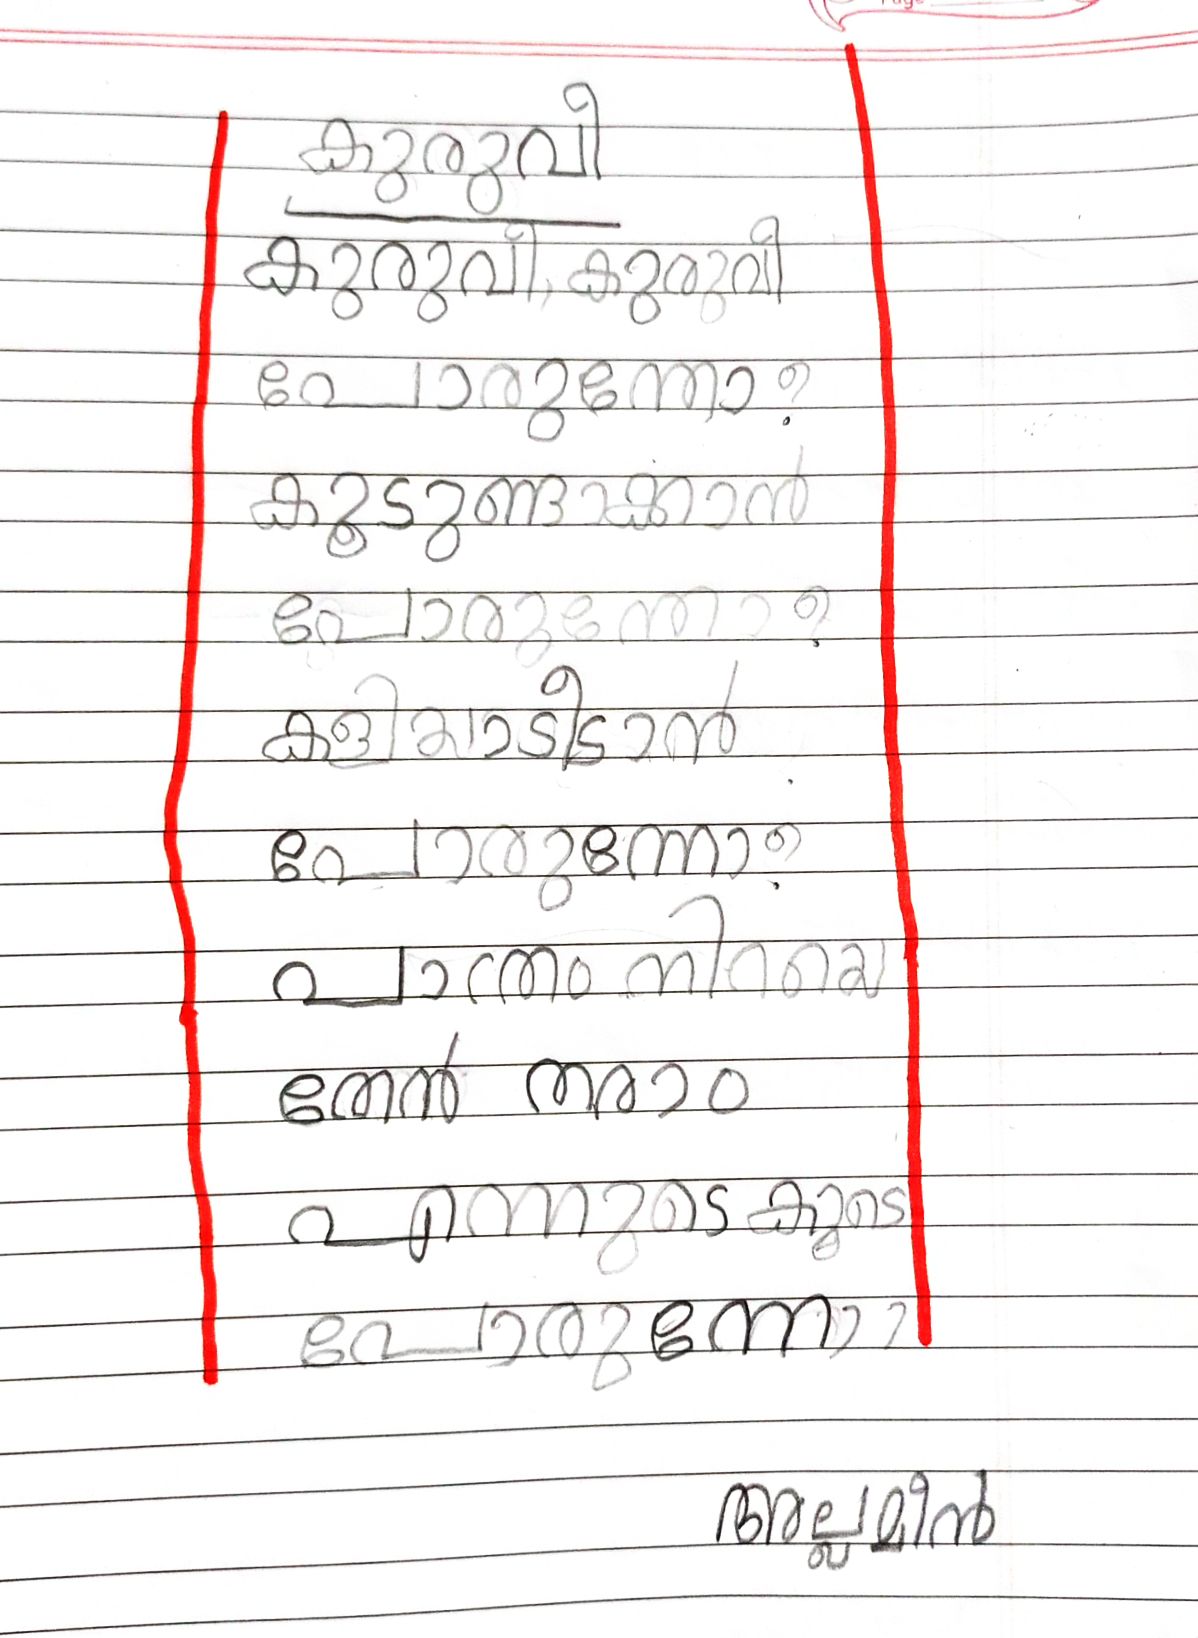 കുരുവി
കുരുവി, കുരുവി
പോരുന്നോ?
കൂടുണ്ടാക്കാൻ
പോരുന്നോ?
കളിയാടീടാൻ
പോരുന്നോ?
പാത്രം നിറയെ
തേൻ തരാം
എന്നുടെ കൂടെ
പോരുന്നോ?